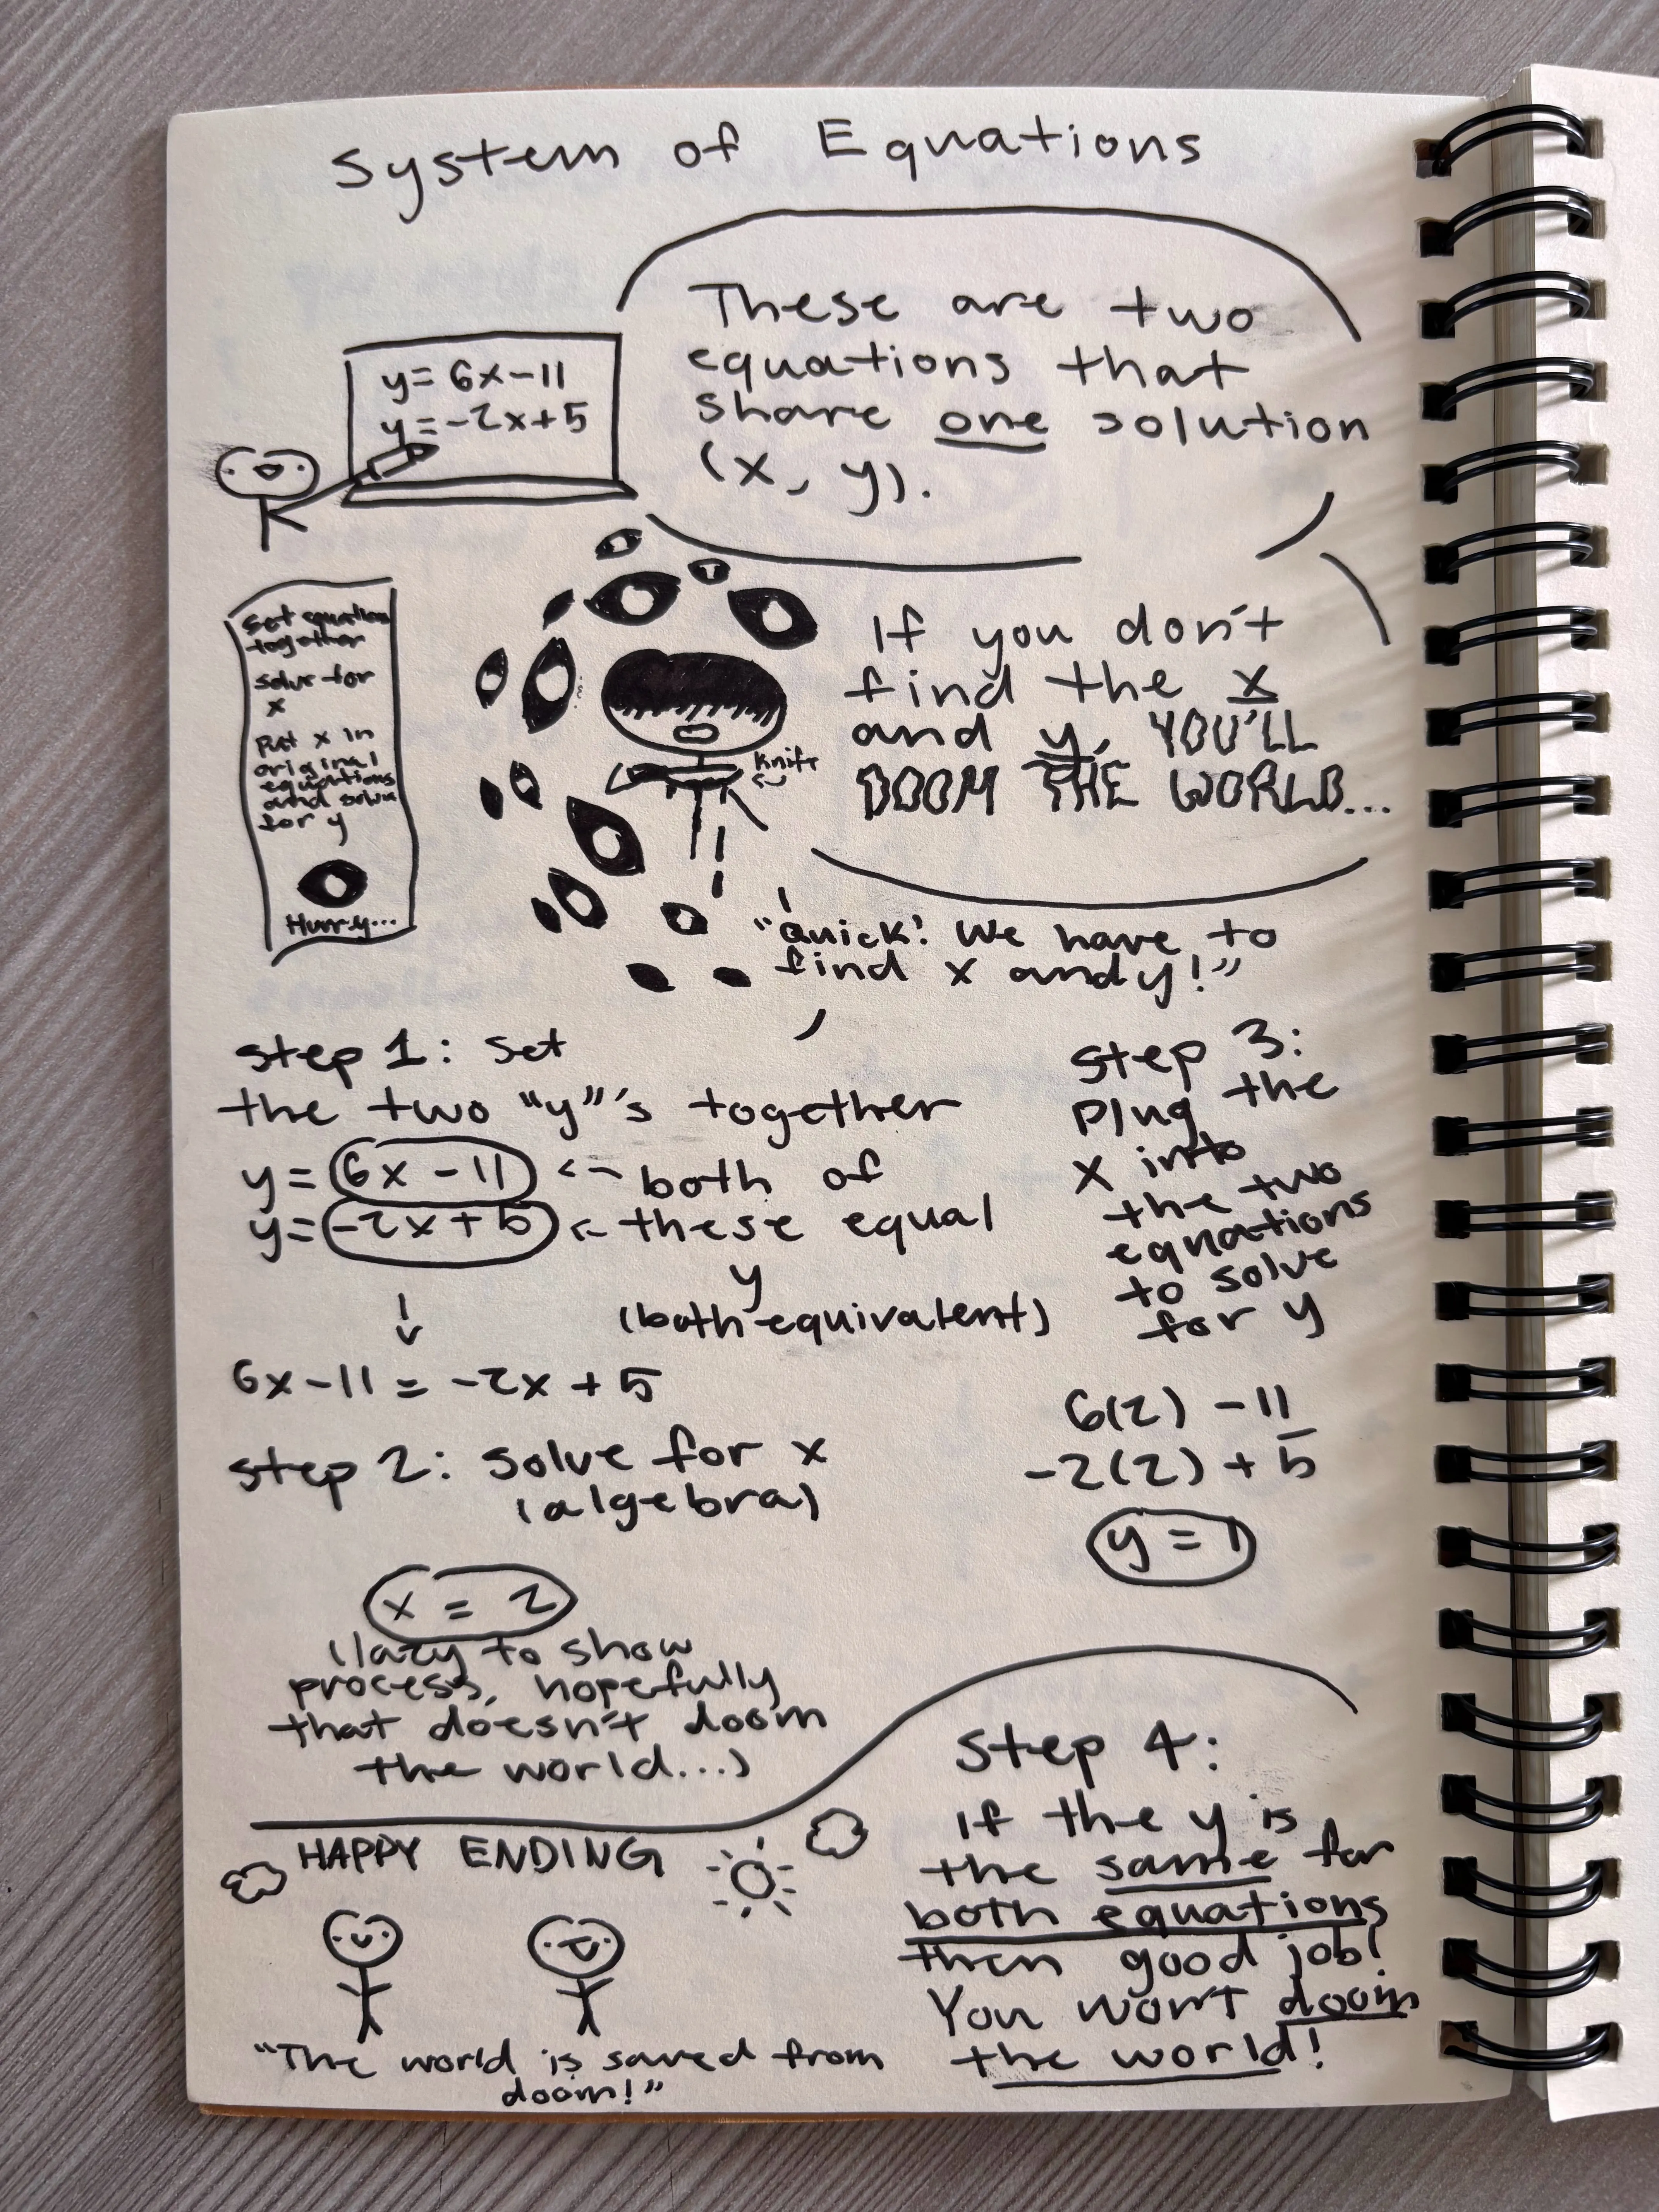 System of Equations
These are two
equations that
share one solution
(x, y).
y = 6x-11
y = -2x+5
Set equation
together
solve for
x
Put x in
original
equations
and solve
for y
Hurry...
If you don't
find the x
and y, YOU'LL
DOOM THE WORLD...
Knife
"Quick! We have to
find x and y!"
Step 1: Set
the two "y"'s together
y = 6x - 11 <- both of
y = -2x + 5 <- these equal
y
(both equivalent)
6x-11 = -2x + 5
Step 2: Solve for x
(algebra)
x = 2
(lazy to show
process, hopefully
that doesn't doom
the world...)
Step 3:
Plug the
x into
the two
equations
to solve
for y
6(2) - 11
-2(2) + 5
y = 1
Step 4:
If the y is
the same for
both equations
then good job!
You won't doom
the world!
HAPPY ENDING
"The world is saved from
doom!"